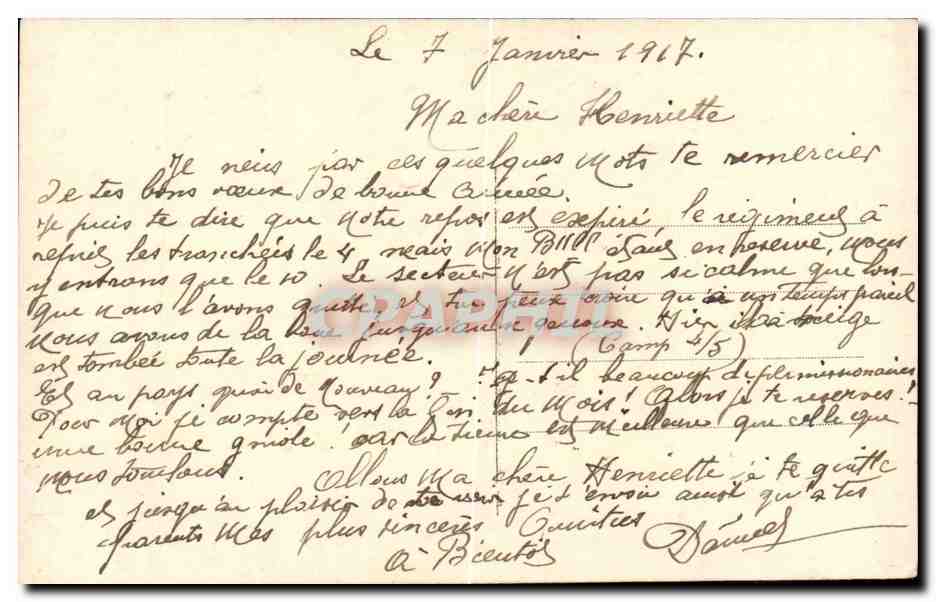 Le 7 Janvier 1917.
Ma chère Henriette
Je viens par ces quelques mots te remercier
de tes bons vœux de bonne année.
Je puis te dire que notre repos est expiré le régiment à
repris les tranchées le 4 mais mon Bill étant en reserve, nous
y entrans que le 10. Le secteur n'est pas si calme que lors-
que nous l'avons quitté, et tu peux croire qu'à un temps pareil
nous avons de la boue jusqu'aux genoux. Hier la neige
est tombée toute la journée. (Camp 4/5)
Et au pays quoi de nouveau? Y a-t-il beaucoup de permissionnaires
Pour moi je compte vers la fin du mois! Alors je te reserves!
une bonne gniole! car la tienne est meilleure que celle que
nous touchons. Allons ma chère Henriette je te quitte
et jusqu'au plaisir de te voir je t'envoi ainsi qu'à tes
parents mes plus sincères amitiés
à Bientôt Daniel
DELCAMPE